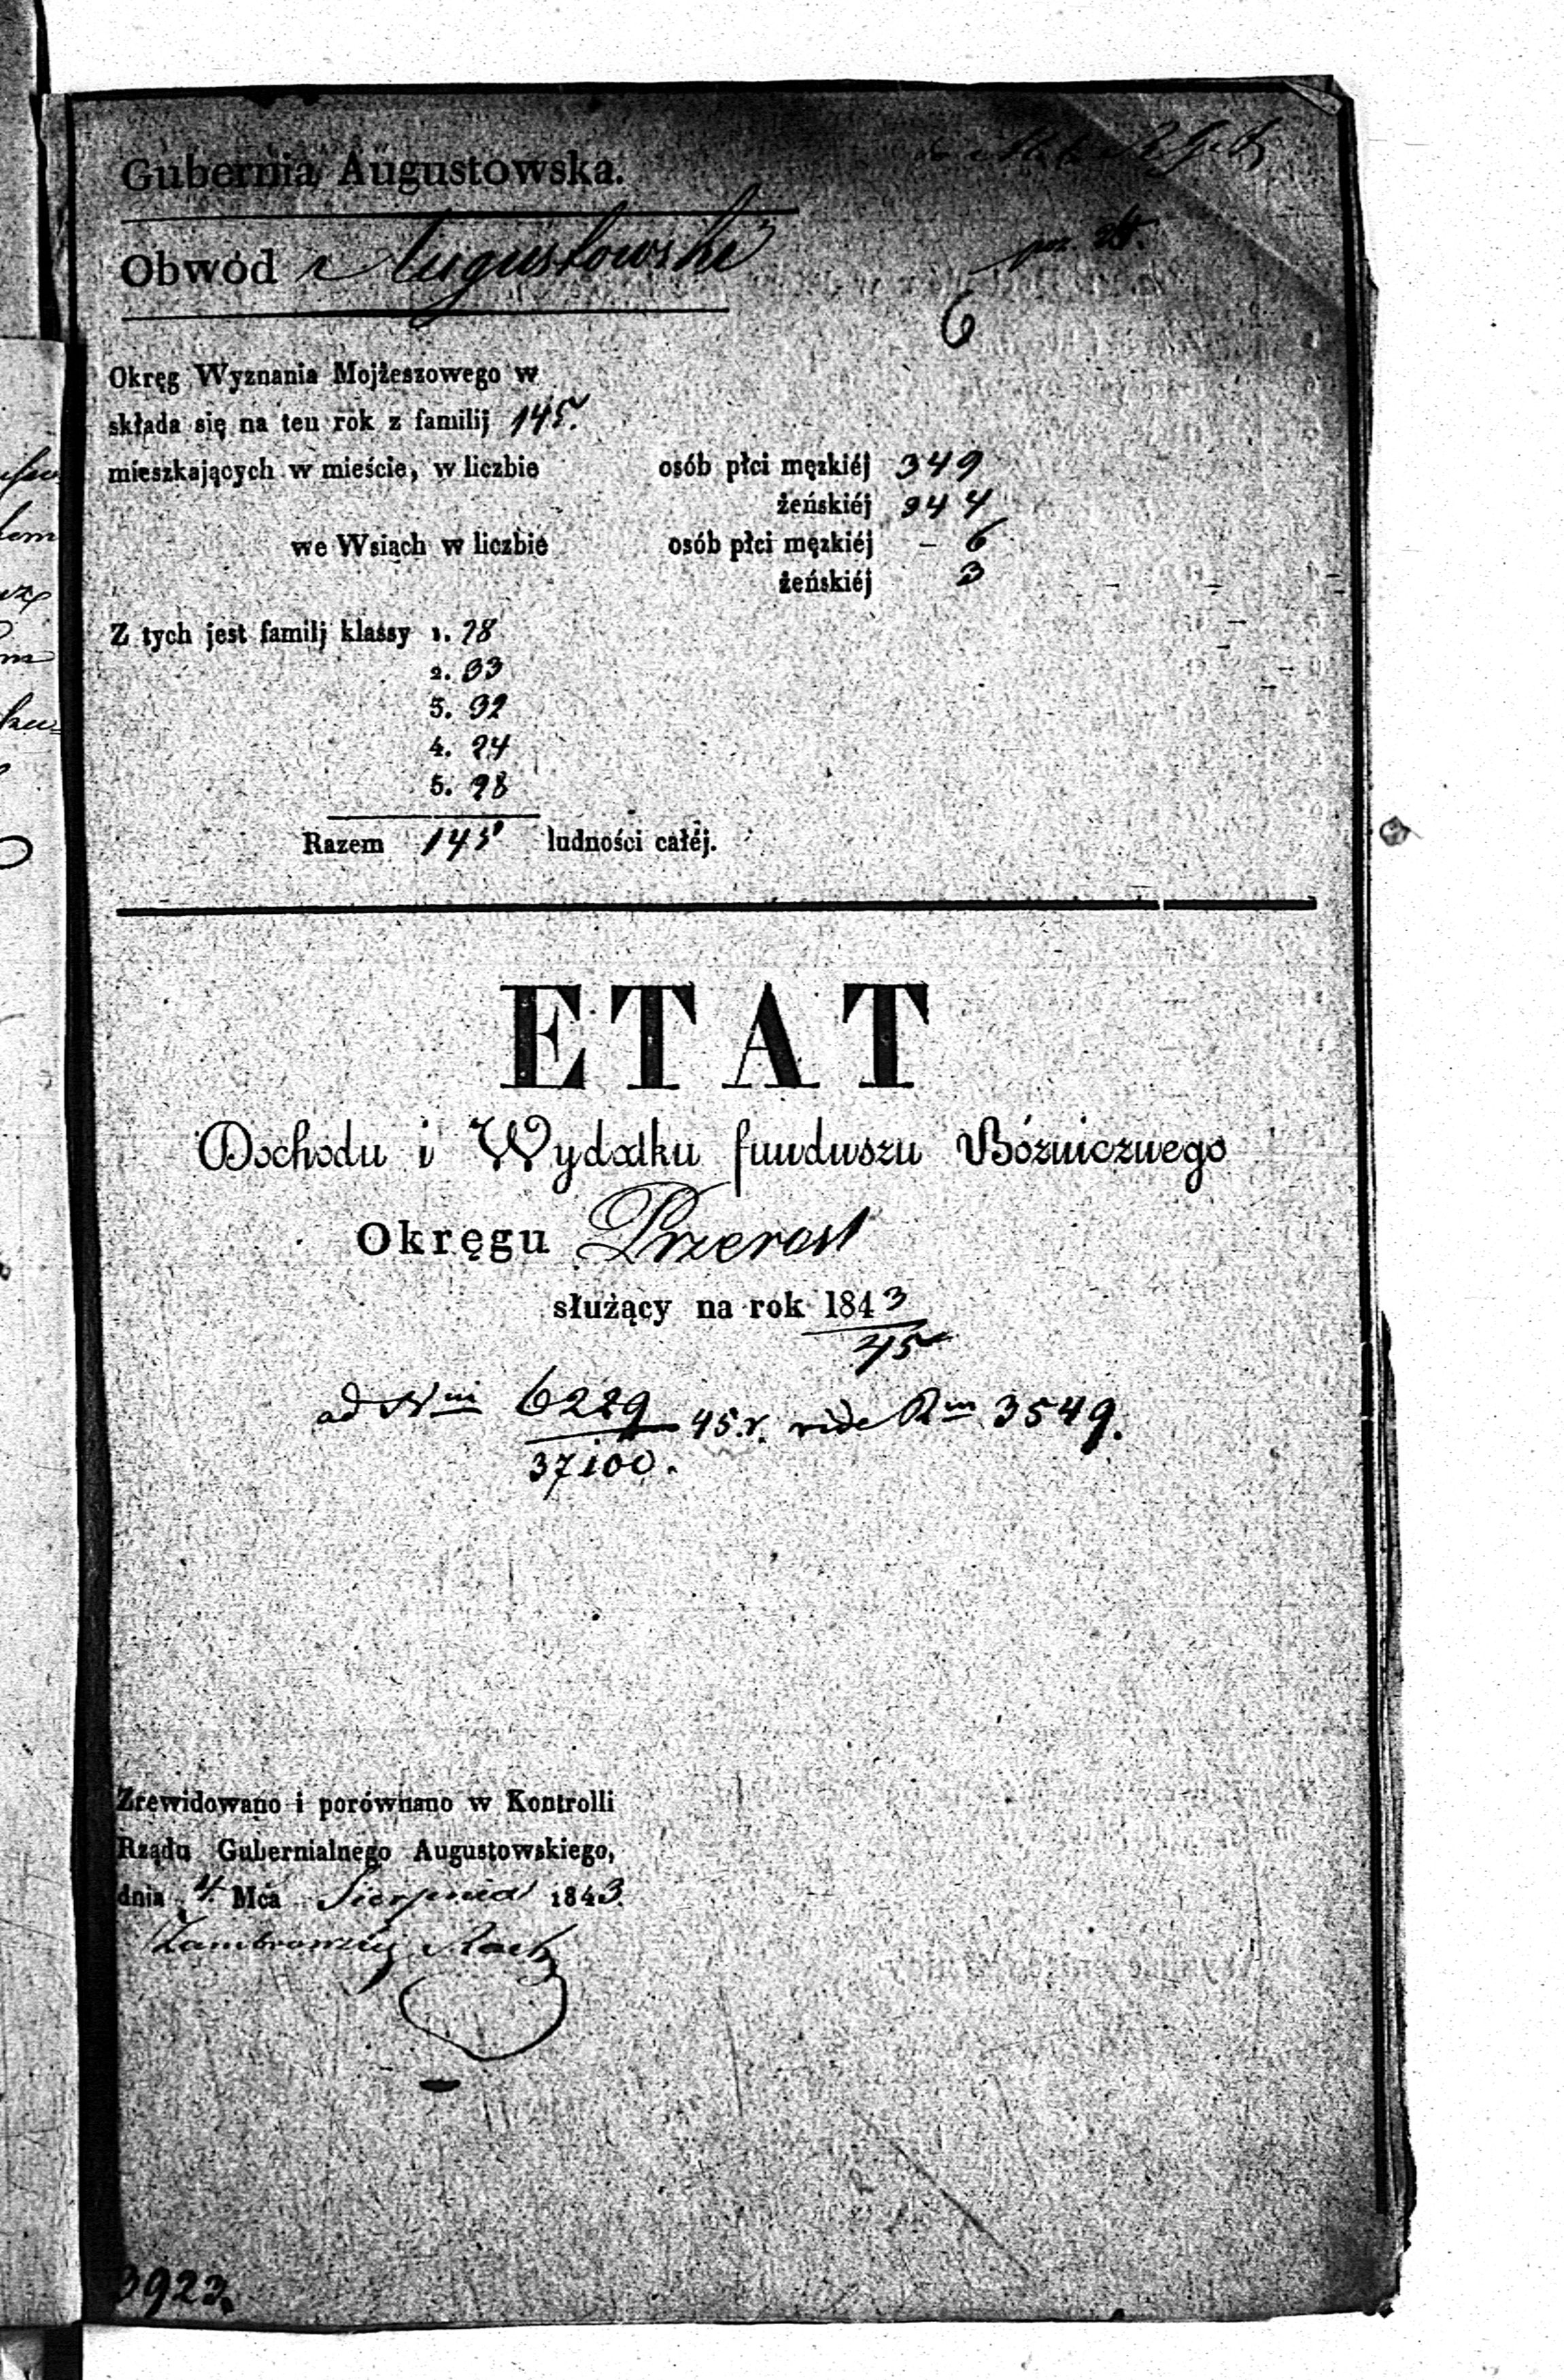 Gubernia Augustowska.
Obwód Augustowski
6
Okręg Wyznania Mojżeszowego w
składa się na ten rok z familij 145.
mieszkających w mieście, w liczbie osób płci męzkiéj 349
żeńskiéj 344
we Wsiach w liczbie osób płci męzkiéj – 6
żeńskiéj 3
Z tych jest familj klassy 1. 28
2. 33
3. 32
4. 24
5. 28
Razem 145 ludności całéj.
ETAT
Dochodu i Wydatku funduszu Bóznicznego
Okręgu Przerosl
służący na rok 1843
45
ad Nm 6229 45.r. vide Rm 3549.
37100.
Zrewidowano i porównano w Kontrolli
Rządu Gubernialnego Augustowskiego,
dnia 4. Mca Sierpnia 1843.
3923.